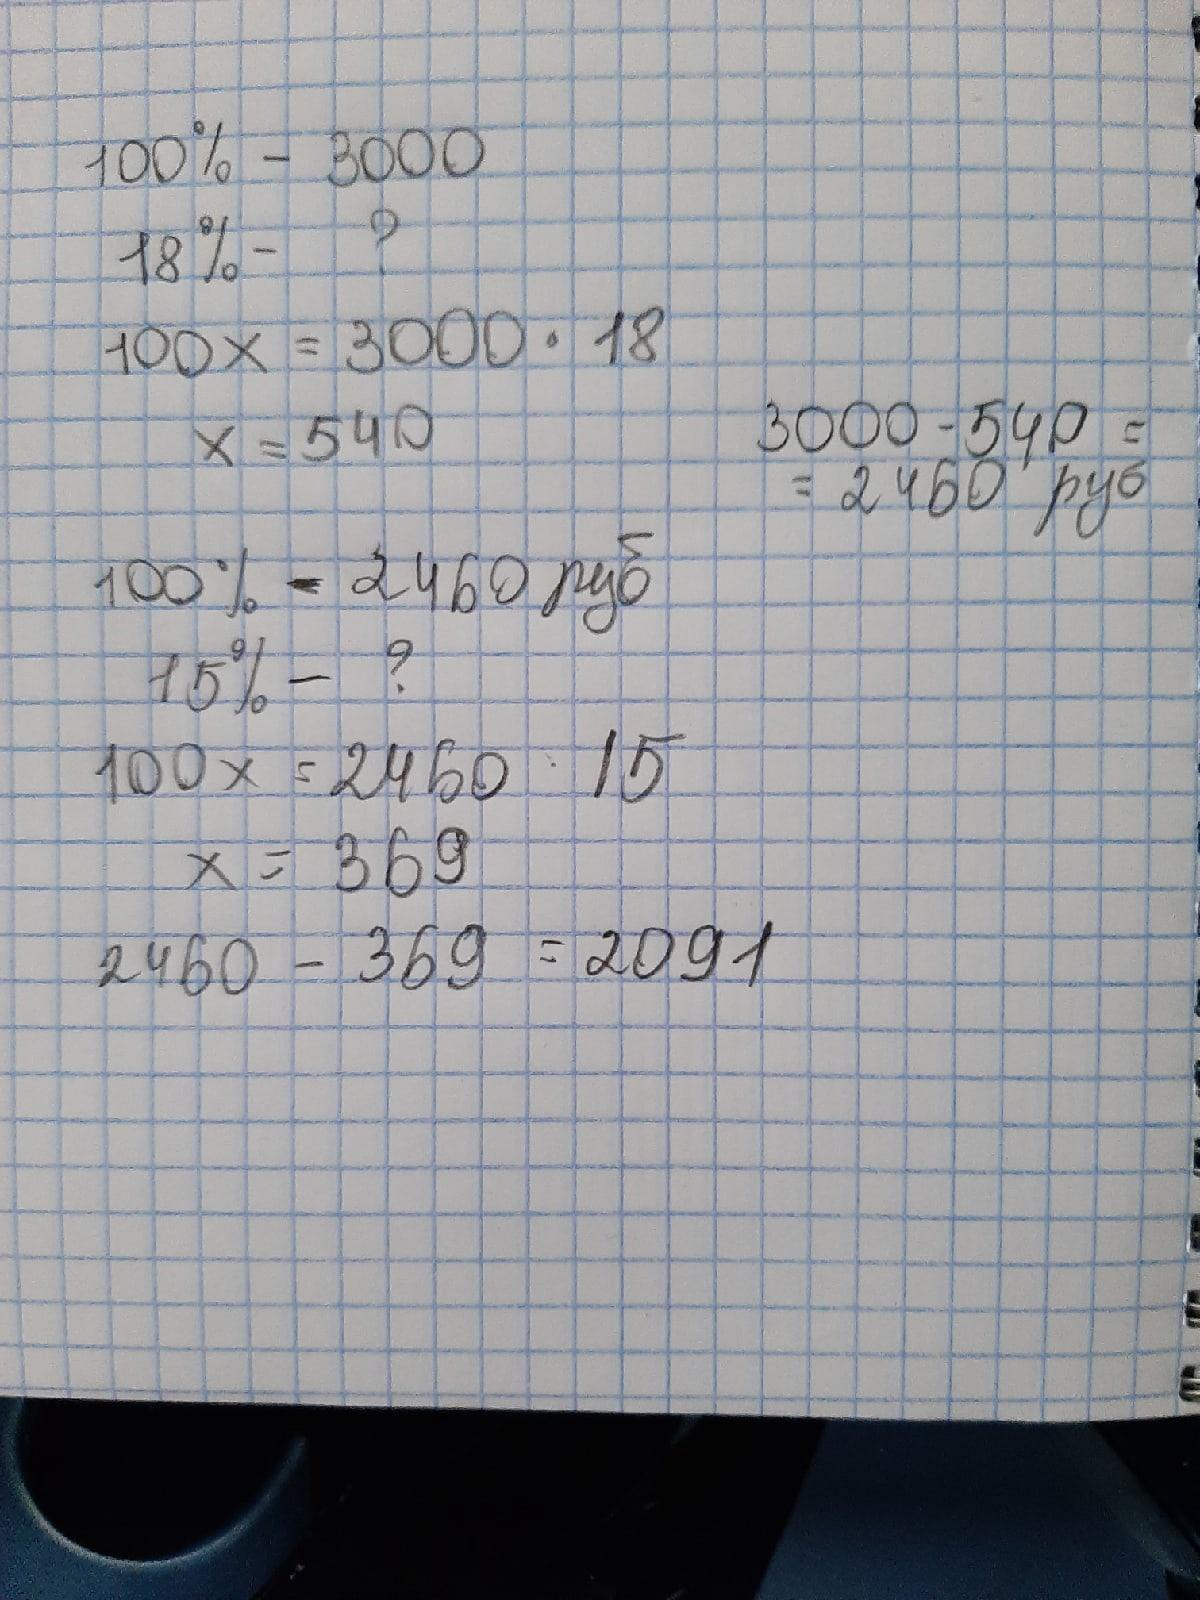 100% - 3000
18% - ?
100x = 3000 · 18
x = 540
3000 - 540 =
= 2460 руб
100% - 2460 руб
15% - ?
100x = 2460 · 15
x = 369
2460 - 369 = 2091